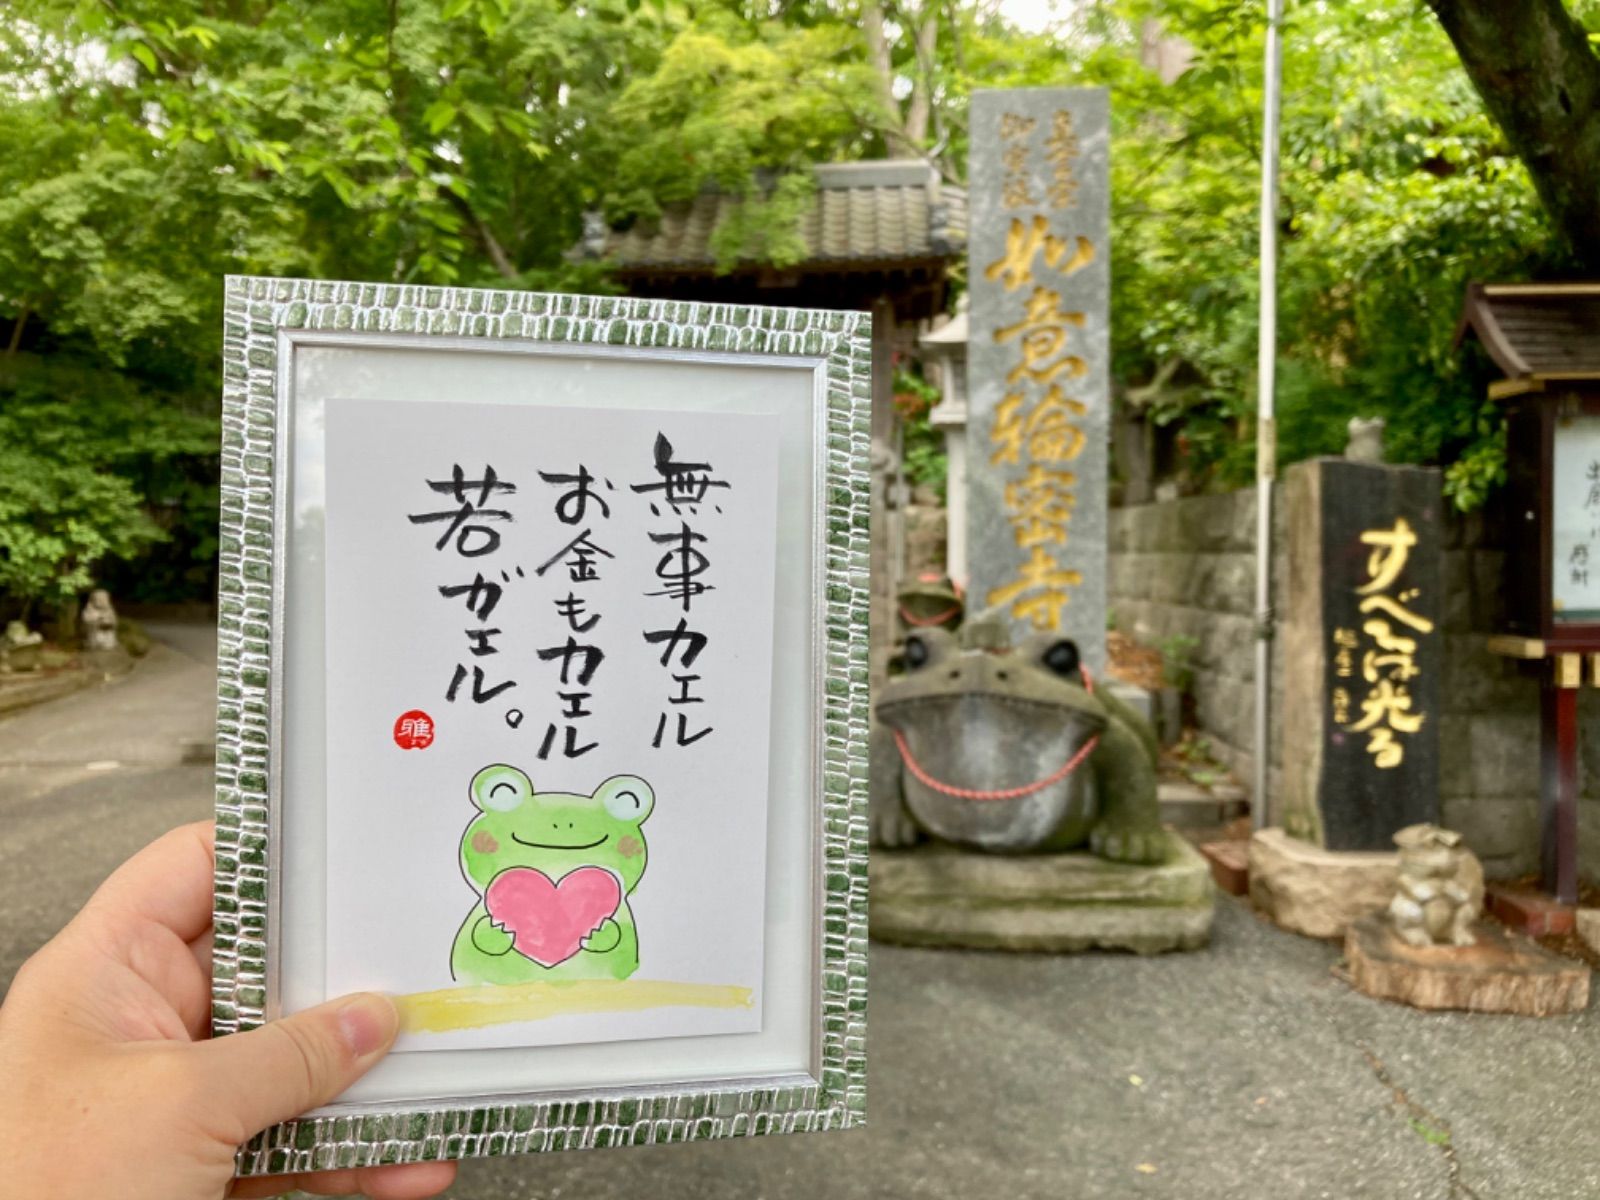 無事カエル
お金もカエル
若ガエル。
雅
真言宗
御室派
如意輪密寺
すべては光る